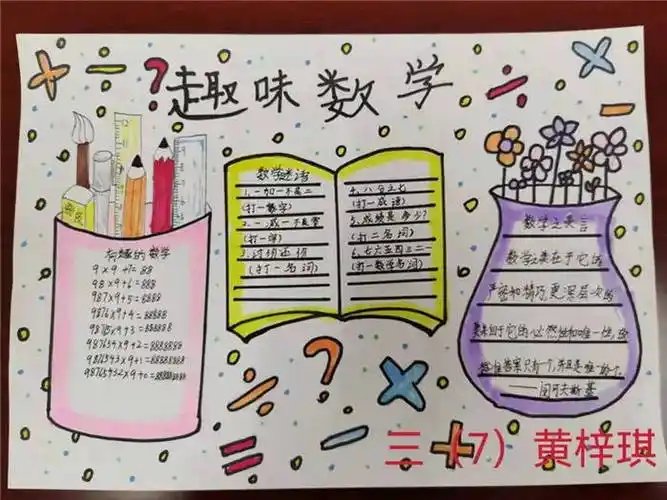 趣味数学
有趣的数学
9×9+7=88
98×9+6=888
987×9+5=8888
9876×9+4=88888
98765×9+3=888888
987654×9+2=8888888
9876543×9+1=88888888
98765432×9+0=888888888
数学谜语
1、一加一不是二
(打一数字)
2、一减一不是零
(打一字)
3、讨价还价
(打一名词)
4、八分之七
(打一成语)
5、成绩是多少?
(打二名词)
6、七六五四三二一
(打一数学名词)
数学之美言
数学之美在于它的
严密和精巧更深层次的
美来自于它的必然性和唯一性,
答案只有一个,并且是唯一的一个.
三(7)黄梓琪